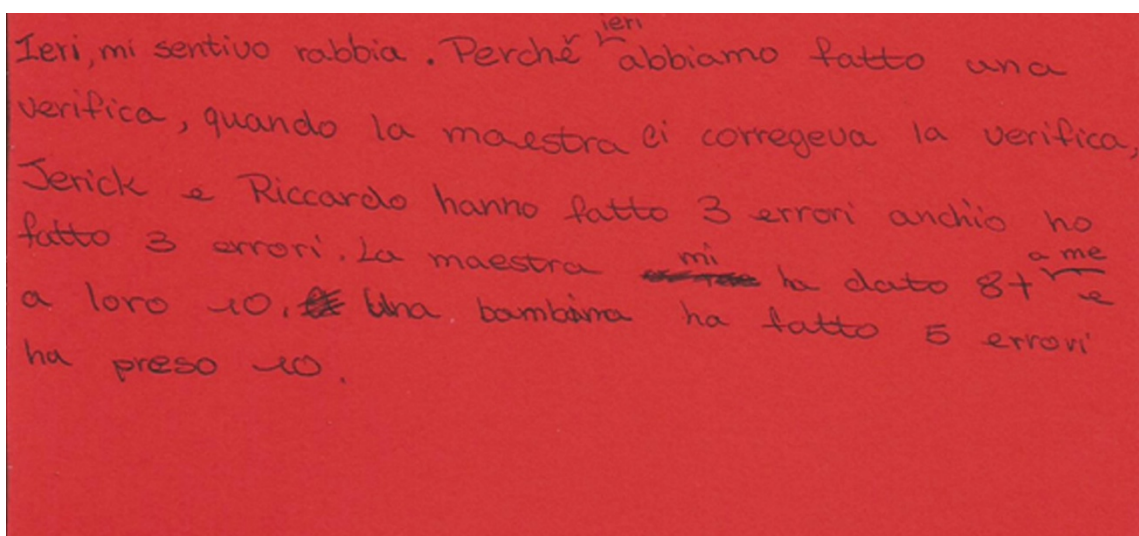 Ieri, mi sentivo rabbia. Perchě ieri abbiamo fatto una
verifica, quando la maestra ci corregeva la verifica,
Jerick e Riccardo hanno fatto 3 errori anchio ho
fatto 3 errori. La maestra mi ha dato 8+ a me e
a loro 10. Una bambina ha fatto 5 errori
ha preso 10.